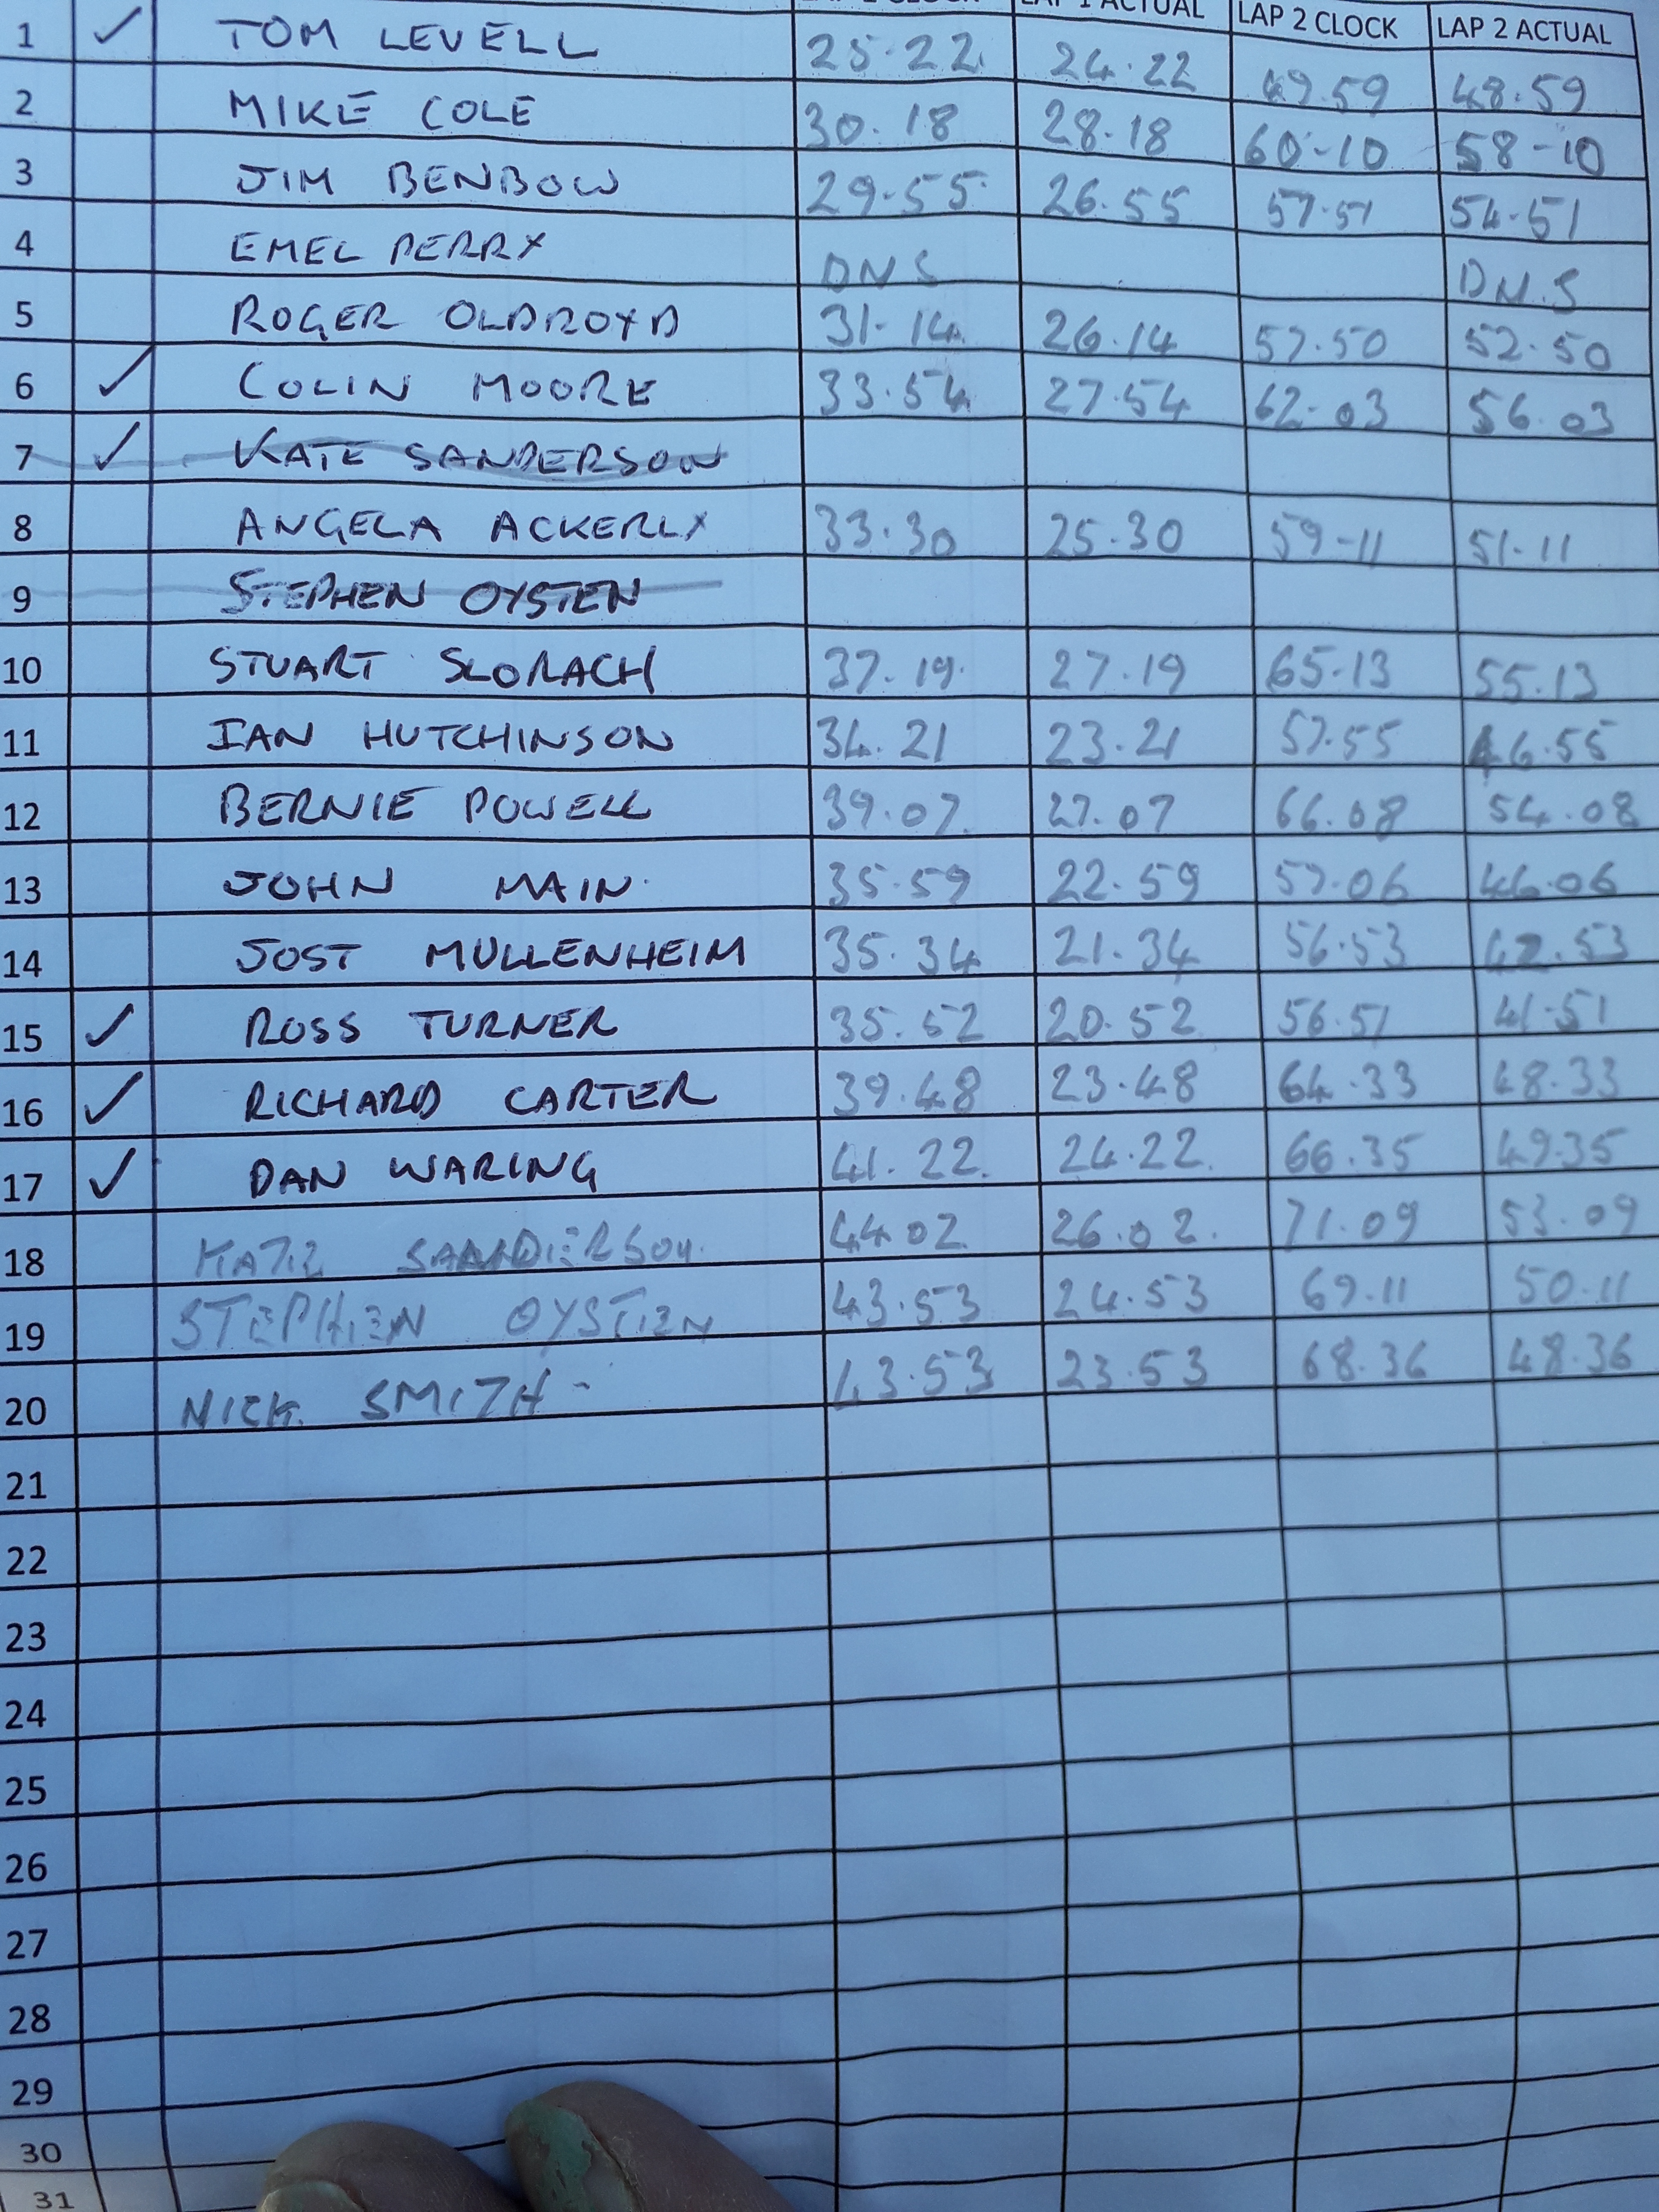 LAP 1 CLOCK LAP 1 ACTUAL LAP 2 CLOCK LAP 2 ACTUAL
1 ✓ TOM LEVELL 25.22 24.22 49.59 48.59
2 MIKE COLE 30.18 28.18 60-10 58-10
3 JIM BENBOW 29.55 26.55 57.51 54.51
4 EMEL PERRY DNS DN.S
5 ROGER OLDROYD 31-14 26.14 57.50 52.50
6 ✓ COLIN MOORE 33.54 27.54 62.03 56.03
7 ✓ KATE SANDERSON
8 ANGELA ACKERLY 33.30 25.30 59-11 51-11
9 STEPHEN OYSTEN
10 STUART SLORACH 37.19 27.19 65.13 55.13
11 IAN HUTCHINSON 34.21 23.21 57.55 46.55
12 BERNIE POWELL 39.07 27.07 66.08 54.08
13 JOHN MAIN 35.59 22.59 57.06 44.06
14 JOST MULLENHEIM 35.34 21.34 56.53 42.53
15 ✓ ROSS TURNER 35.52 20.52 56.51 41.51
16 ✓ RICHARD CARTER 39.48 23.48 64.33 48.33
17 ✓ DAN WARING 41.22 24.22 66.35 49.35
18 KATE SANDERSON 44.02 26.02 71.09 53.09
19 STEPHEN OYSTEN 43.53 24.53 69.11 50.11
20 NICK SMITH - 43.53 23.53 68.36 48.36
21
22
23
24
25
26
27
28
29
30
31